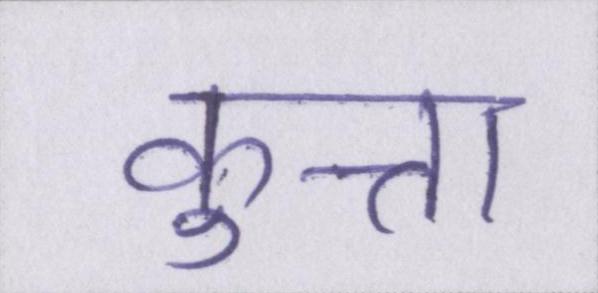 कुत्ता